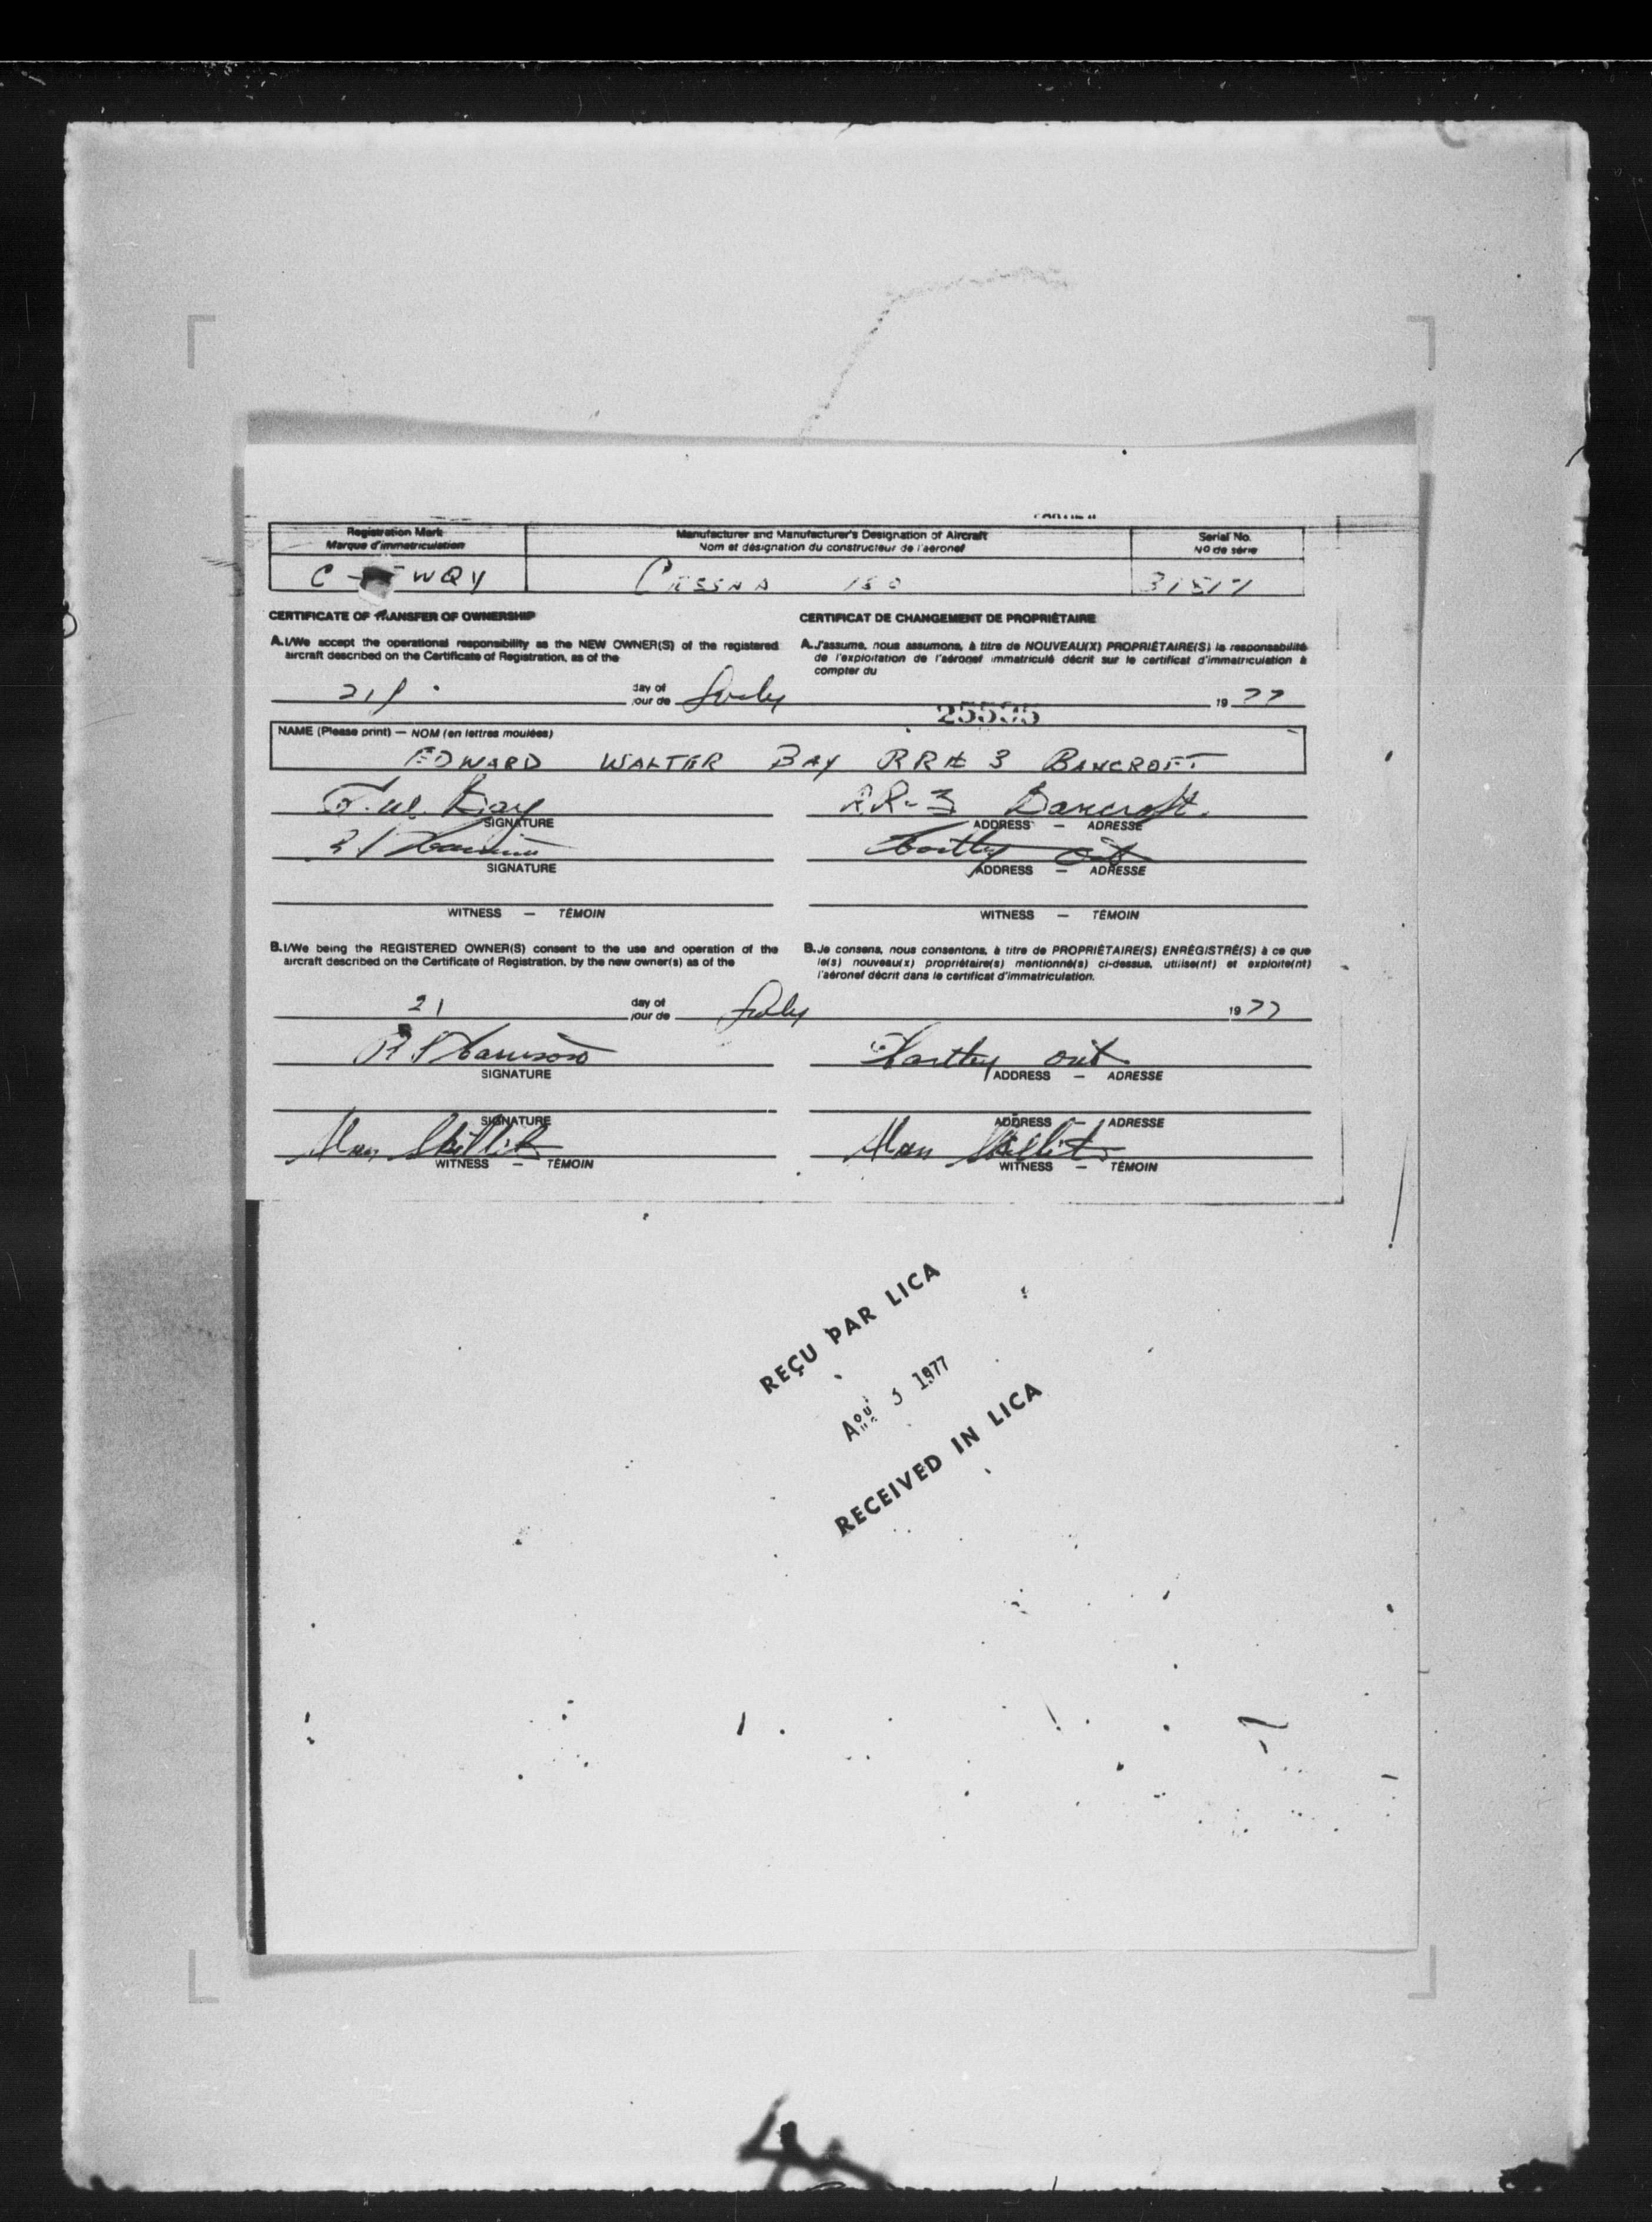 Registration Mark
Marque d'immatriculation
Manufacturer and Manufacturer's Designation of Aircraft
Nom et désignation du constructeur de l'aéronef
Serial No.
NO de série
C - WQY
CESSNA 150
CERTIFICATE OF TRANSFER OF OWNERSHIP
A. I/We accept the operational responsibility as the NEW OWNER(S) of the registered
aircraft described on the Certificate of Registration, as of the
CERTIFICAT DE CHANGEMENT DE PROPRIÉTAIRE
A. J'assume, nous assumons, à titre de NOUVEAU(X) PROPRIÉTAIRE(S) la responsabilité
de l'exploitation de l'aéronef immatriculé décrit sur le certificat d'immatriculation à
compter du
day of
jour de
July
19 77
25505
NAME (Please print) — NOM (en lettres moulées)
EDWARD WALTER BAY RR# 3 BANCROFT
E. W. Bay
SIGNATURE
RR-3 Bancroft.
ADDRESS — ADRESSE
SIGNATURE
Hartley Ont
ADDRESS — ADRESSE
WITNESS — TÉMOIN
WITNESS — TÉMOIN
B. I/We being the REGISTERED OWNER(S) consent to the use and operation of the
aircraft described on the Certificate of Registration, by the new owner(s) as of the
B. Je consens, nous consentons, à titre de PROPRIÉTAIRE(S) ENRÉGISTRÉ(S) à ce que
le(s) nouveau(x) propriétaire(s) mentionné(s) ci-dessus, utilise(nt) et exploite(nt)
l'aéronef décrit dans le certificat d'immatriculation.
21
day of
jour de
July
19 77
SIGNATURE
Hartley Ont
ADDRESS — ADRESSE
SIGNATURE
ADDRESS ADRESSE
Alan
WITNESS — TÉMOIN
Alan
WITNESS — TÉMOIN
REÇU PAR LICA
Aou 5 1977
RECEIVED IN LICA